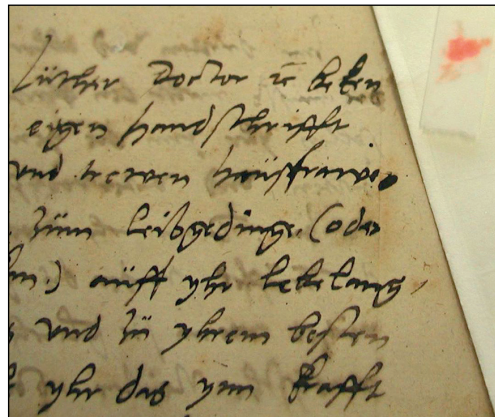 Luther Doctor ꝛc̄ beken
eigen handschrifft
vnd trewen hausfrawen
zum leibgedinge (oder
.) auff yhr lebelang
vnd zu yhrem besten
yhr das ynn krafft